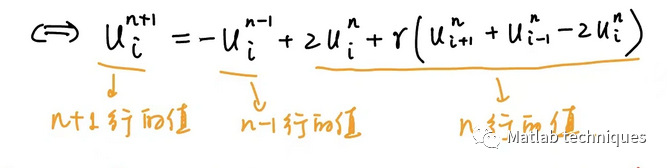 ⇔ uᵢⁿ⁺¹ = -uᵢⁿ⁻¹ + 2uᵢⁿ + r(uᵢ₊₁ⁿ + uᵢ₋₁ⁿ - 2uᵢⁿ)
n+1行的值 n-1行的值 n行的值
Matlab techniques